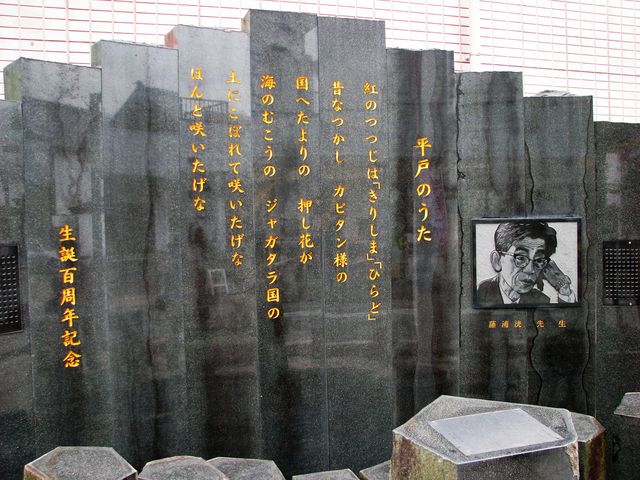 平戸のうた
紅のつつじは「きりしま」「ひらど」
昔なつかし　カピタン様の
国へたよりの　押し花が
海のむこうの　ジャガタラ国の
土にこぼれて咲いたげな
ほんと咲いたげな
生誕百周年記念
藤浦洸　先生